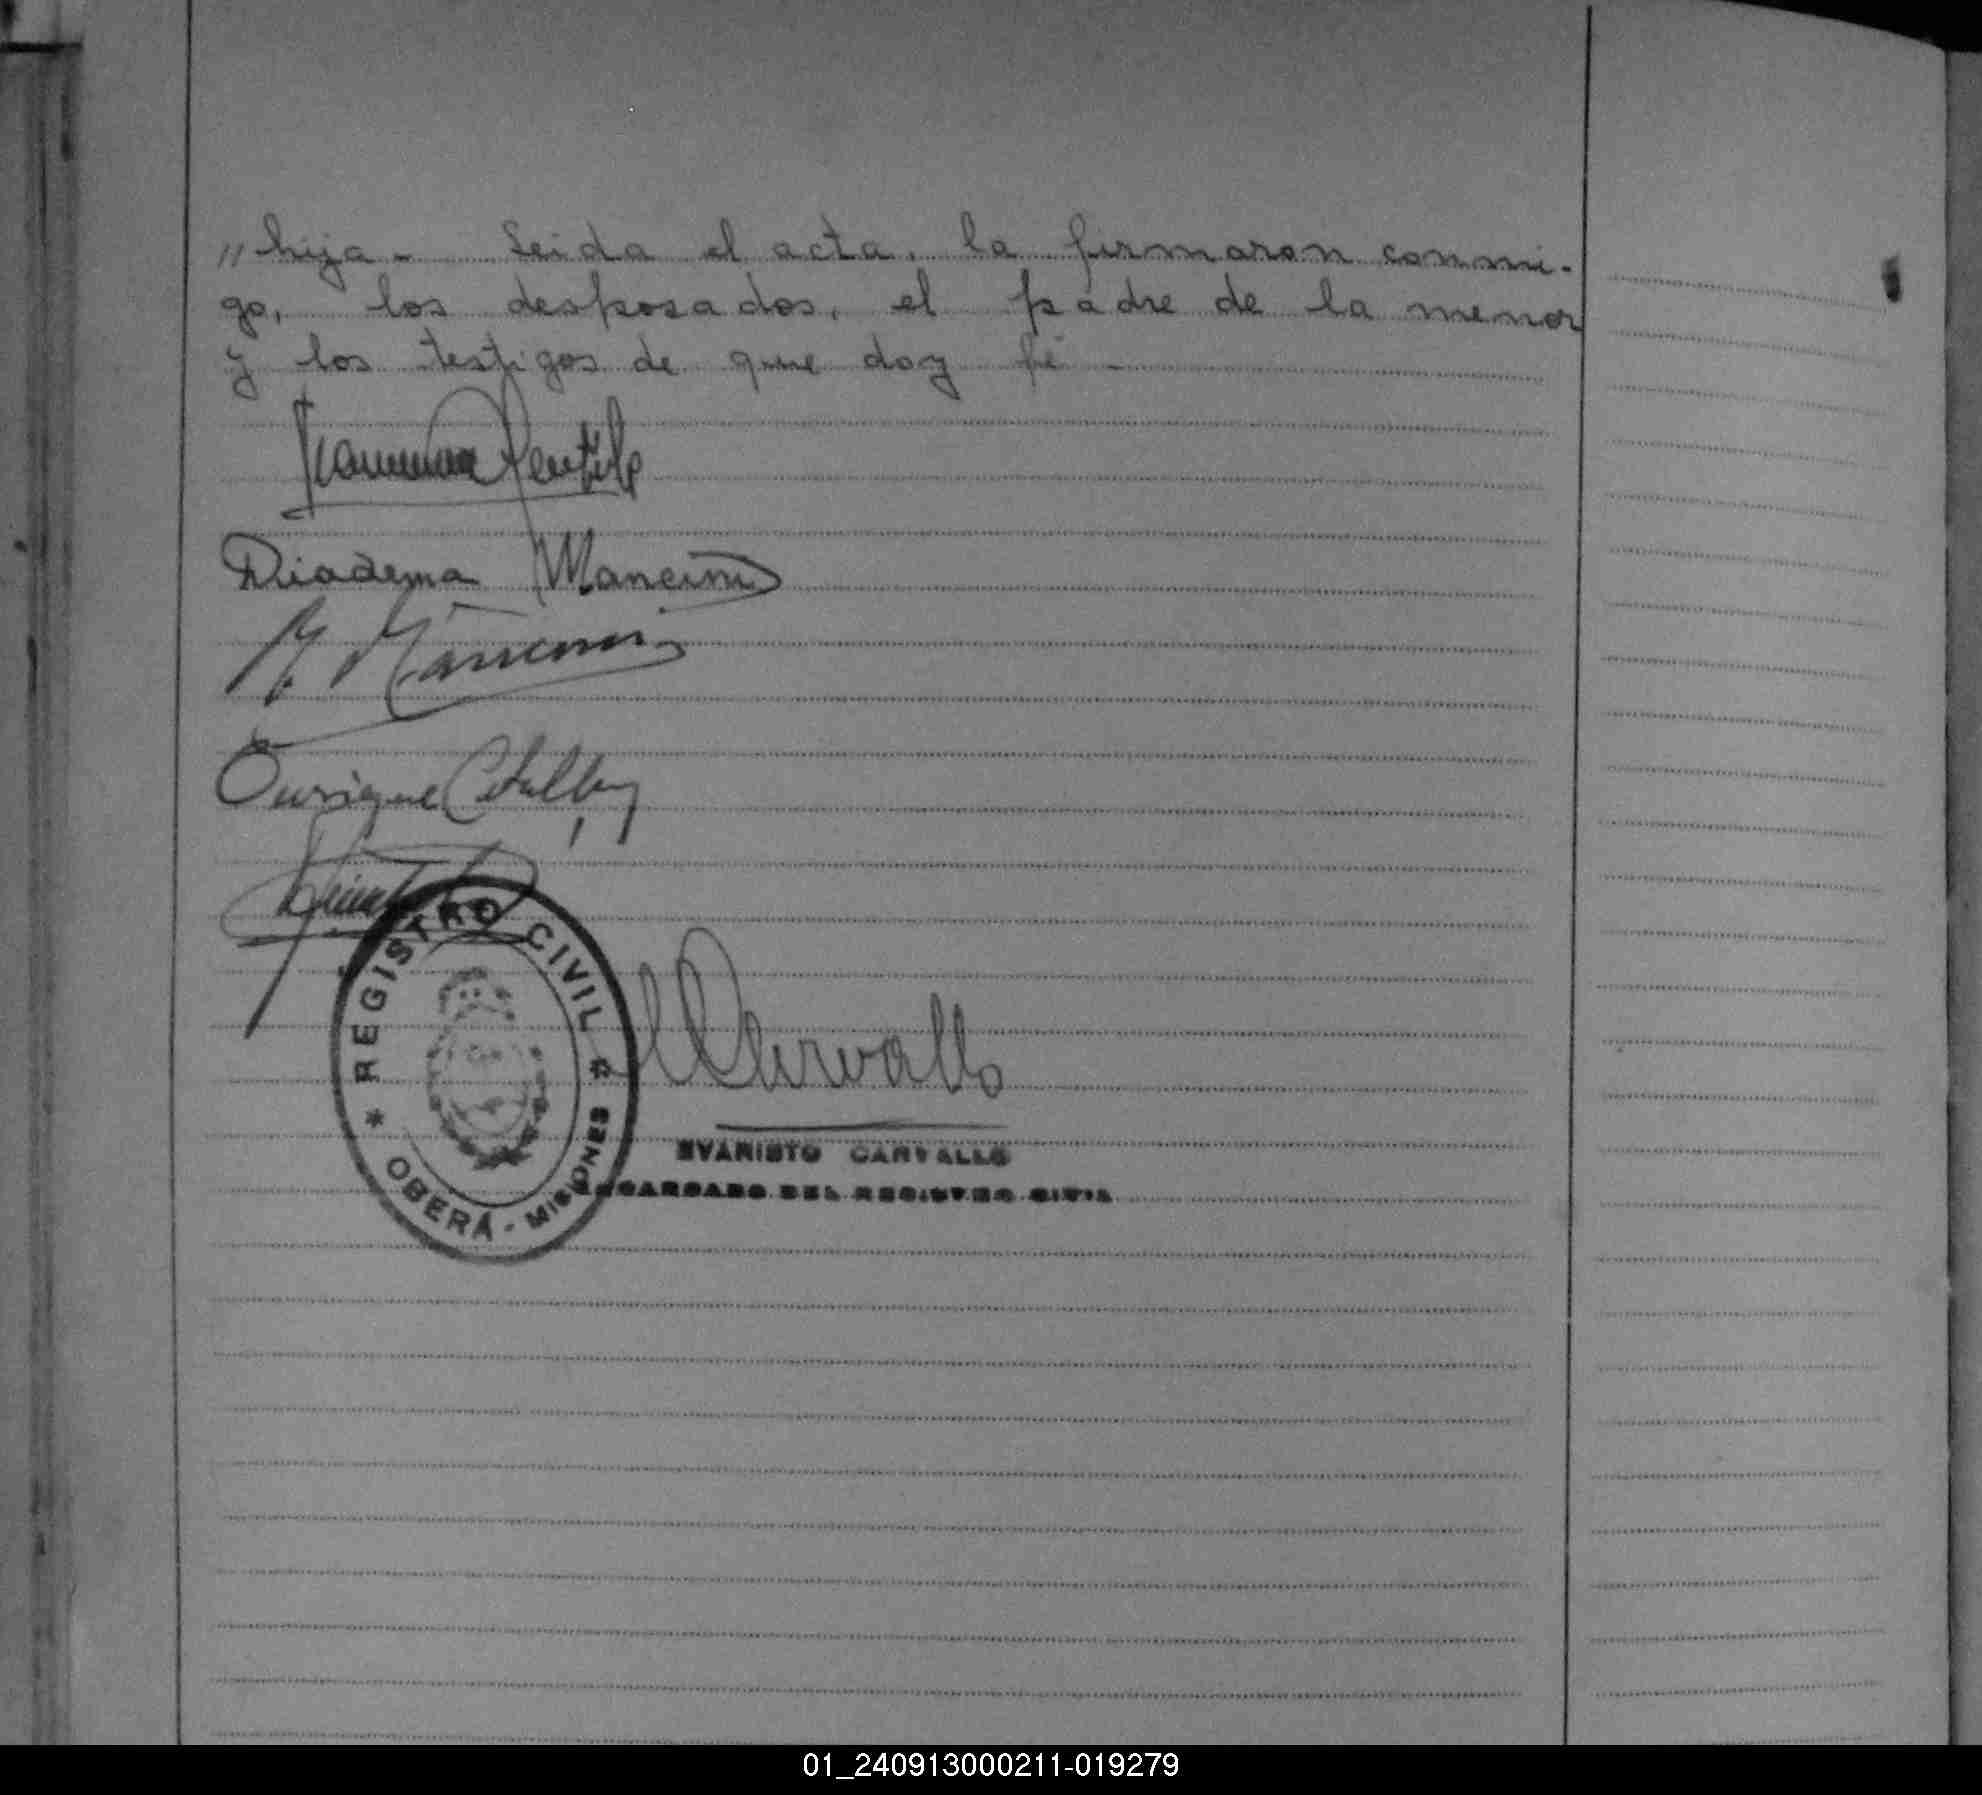 „ hija - Leida el acta, la firmaron conmi-
go, los desposados, el padre de la menor
y los testigos de que doy fé -
Diadema Mancini
M. Mancini
Enrique
REGISTRO CIVIL
OBERÁ - MISIONES
Carvallo
EVARISTO CARVALLO
ENCARGADO DEL REGISTRO CIVIL
01_240913000211-019279